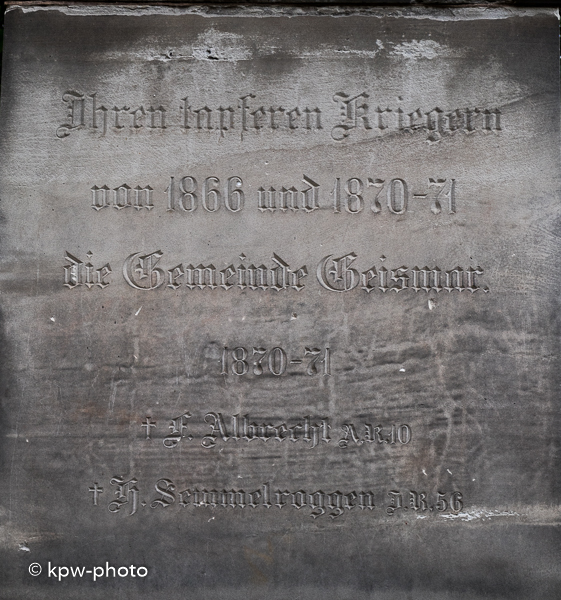 Ihren tapferen Kriegern
von 1866 und 1870-71
die Gemeinde Geismar.
1870-71
† F. Albrecht A.R.10
† H. Semmelroggen J.R.56
© kpw-photo